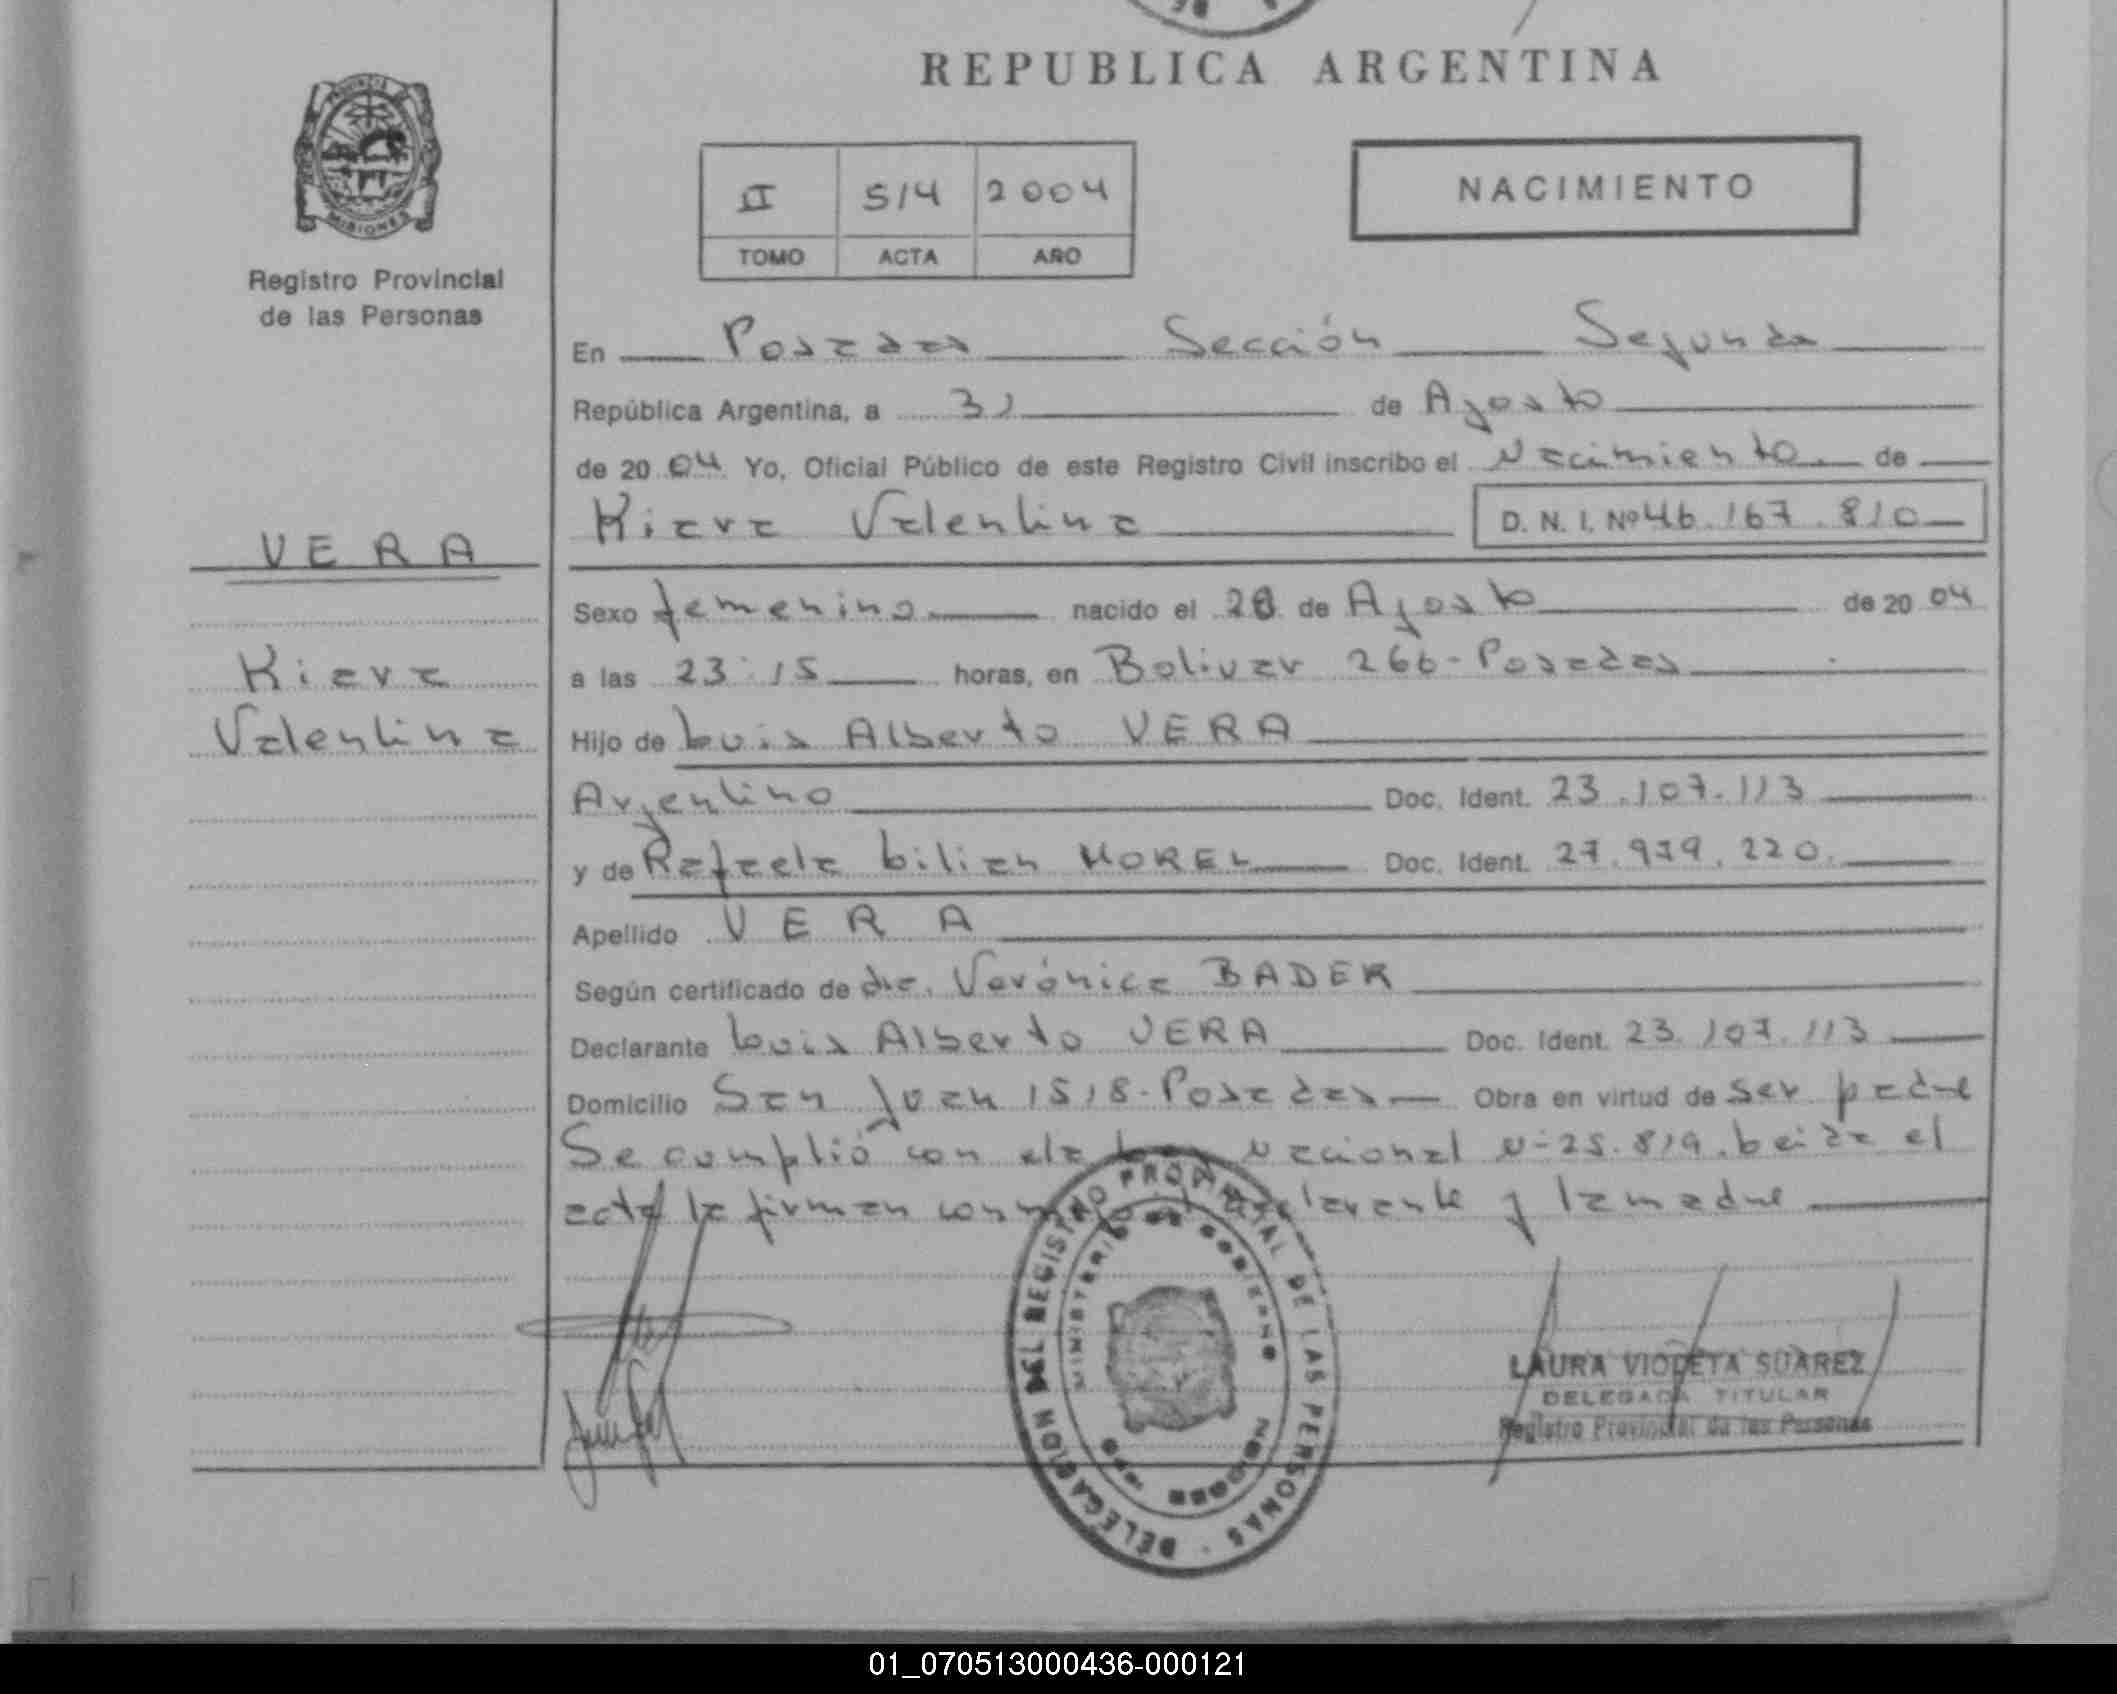 REPUBLICA ARGENTINA
PROVINCIA DE MISIONES
Registro Provincial
de las Personas
II 514 2004
TOMO ACTA AÑO
NACIMIENTO
En Posadas Sección Segunda
República Argentina, a 31 de Agosto
de 2004 Yo, Oficial Público de este Registro Civil inscribo el Nacimiento de
Kiara Valentina D. N. I. Nº 46.167.810
VERA
Sexo femenino nacido el 28 de Agosto de 2004
Kiara
a las 23:15 horas, en Bolivar 266-Posadas
Valentina
Hijo de Luis Alberto VERA
Argentino Doc. Ident. 23.107.113
y de Rafaela Lilian MOREL Doc. Ident. 27.979.220.
Apellido VERA
Según certificado de dra. Verónica BADER
Declarante Luis Alberto VERA Doc. Ident. 23.107.113
Domicilio San Juan 1518-Posadas Obra en virtud de ser padre
Se cumplió con la Ley Nacional Nº 25.819. Leída el
acta la firman conmigo el declarante y la madre
DELEGACION DEL REGISTRO PROVINCIAL DE LAS PERSONAS
MINISTERIO DE GOBIERNO
LAURA VIOLETA SUAREZ
DELEGADA TITULAR
Registro Provincial de las Personas
01_070513000436-000121